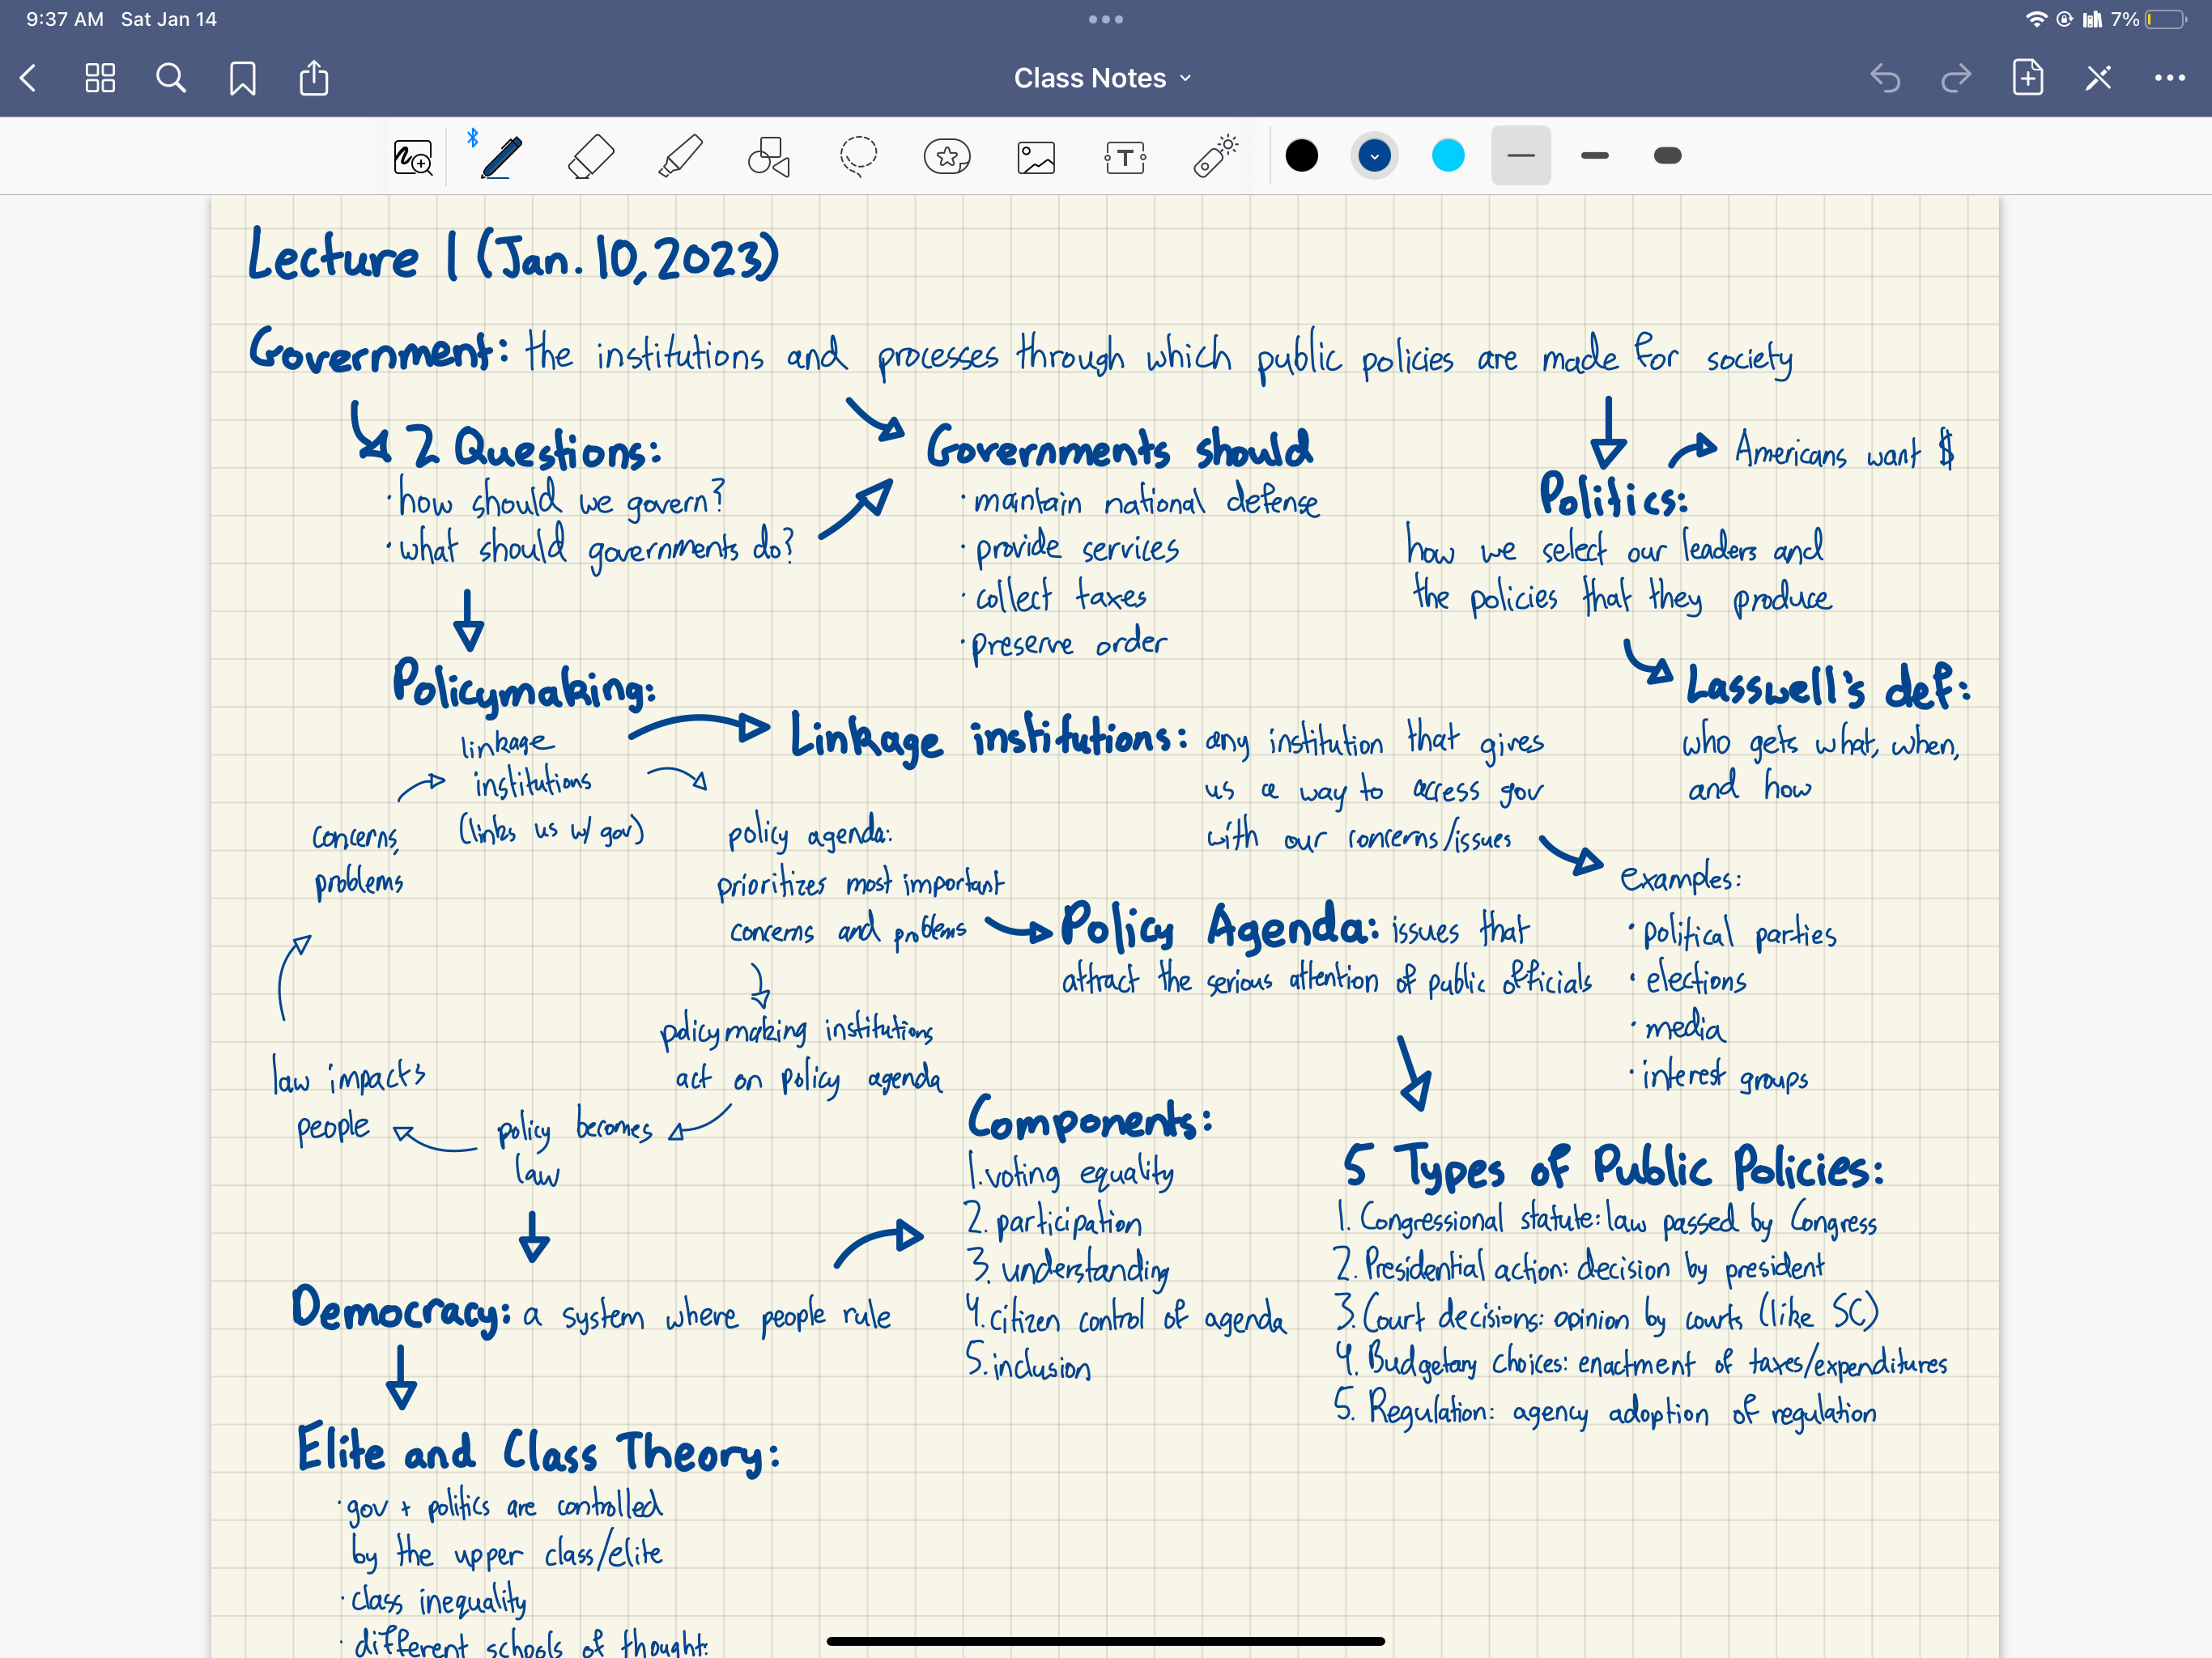 9:37 AM Sat Jan 14
7%
Class Notes
T
Lecture 1 (Jan. 10, 2023)
Government: the institutions and processes through which public policies are made for society
2 Questions:
· how should we govern?
· what should governments do?
Governments should
· maintain national defense
· provide services
· collect taxes
· preserve order
Americans want $
Politics:
how we select our leaders and
the policies that they produce
Lasswell's def:
who gets what, when,
and how
Policymaking:
linkage
institutions
(links us w/ gov)
concerns,
problems
policy agenda:
prioritizes most important
concerns and problems
policymaking institutions
act on policy agenda
policy becomes
law
law impacts
people
Linkage institutions: any institution that gives
us a way to access gov
with our concerns/issues
examples:
· political parties
· elections
· media
· interest groups
Policy Agenda: issues that
attract the serious attention of public officials
5 Types of Public Policies:
1. Congressional statute: law passed by Congress
2. Presidential action: decision by president
3. Court decisions: opinion by courts (like SC)
4. Budgetary choices: enactment of taxes/expenditures
5. Regulation: agency adoption of regulation
Democracy: a system where people rule
Components:
1. voting equality
2. participation
3. understanding
4. citizen control of agenda
5. inclusion
Elite and Class Theory:
· gov + politics are controlled
by the upper class/elite
· class inequality
· different schools of thought: